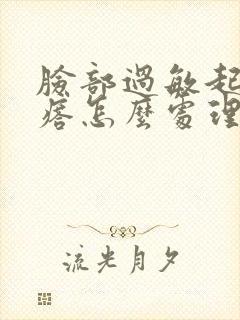 臉部過敏起
痞怎麼處理
流光月夕